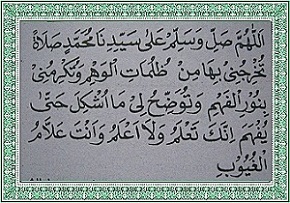 اَللّٰهُمَّ صَلِّ وَسَلِّمْ عَلٰى سَيِّدِنَا مُحَمَّدٍ صَلَاةً
تُخْرِجُنِيْ بِهَا مِنْ ظُلُمَاتِ الْوَهْمِ وَتُكْرِمُنِيْ
بِنُوْرِ الْفَهْمِ وَتُوَضِّحُ لِيْ مَا اَشْكَلَ حَتّٰى
يُفْهَمَ اِنَّكَ تَعْلَمُ وَلَا اَعْلَمُ وَاَنْتَ عَلَّامُ
الْغُيُوْبِ